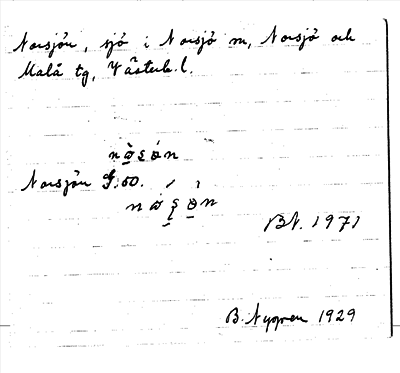 Norsjön, sjö i Norsjö sn, Norsjö och
Malå tg, Västerb. l.
Norsjön G:50.
BN. 1971
B. Nygren 1929